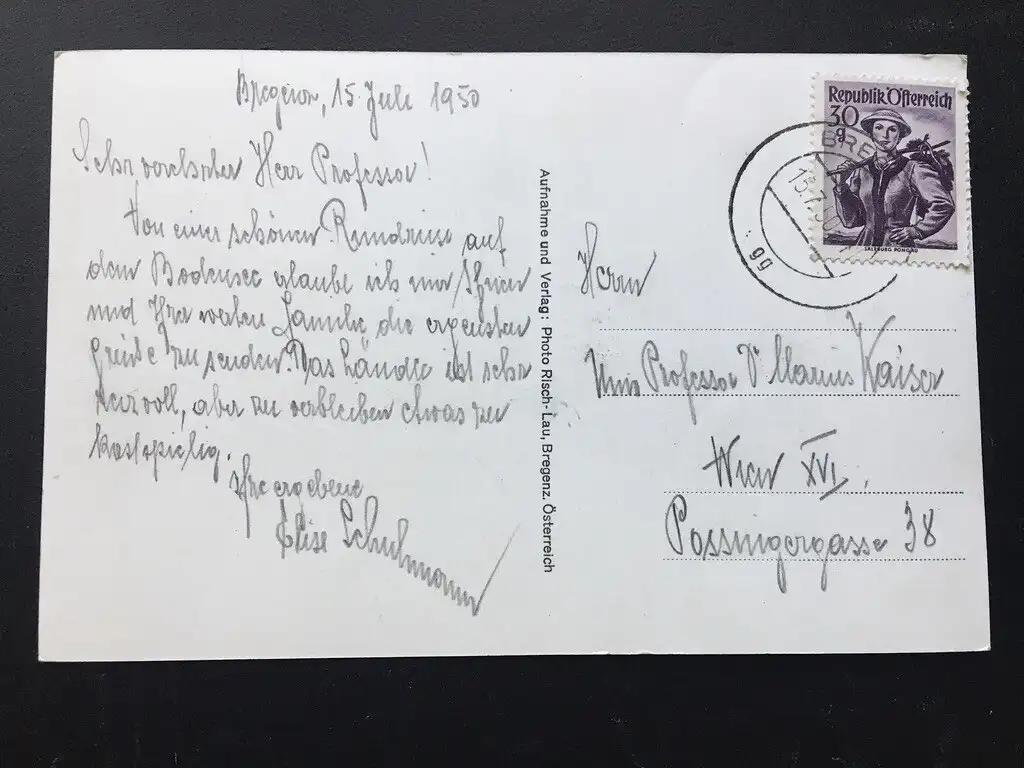 Bregenz, 15. Juli 1950
Sehr verehrter Herr Professor!
Von einer schönen Rundreise auf
dem Bodensee erlaube ich mir, Ihnen
und Ihrer werten Familie, die ergebensten
Grüße zu senden. Das Ländle ist sehr
reizvoll, aber zu verbleiben etwas zu
kostspielig.
Ihre ergebene
Elise Schuhmann
Aufnahme und Verlag: Photo Risch-Lau, Bregenz. Österreich
Republik Österreich
30
g
SALZBURG PONGAU
BRE
gg
Herrn
Univ Professor Dr Marius Kaiser
Wien XVI.
Possingergasse 38